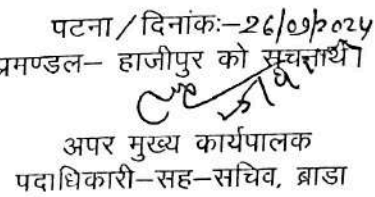 पटना/दिनांकः–26/09/2024
प्रमण्डल– हाजीपुर को सूचनार्थ।
अपर मुख्य कार्यपालक
पदाधिकारी–सह–सचिव, ब्राडा